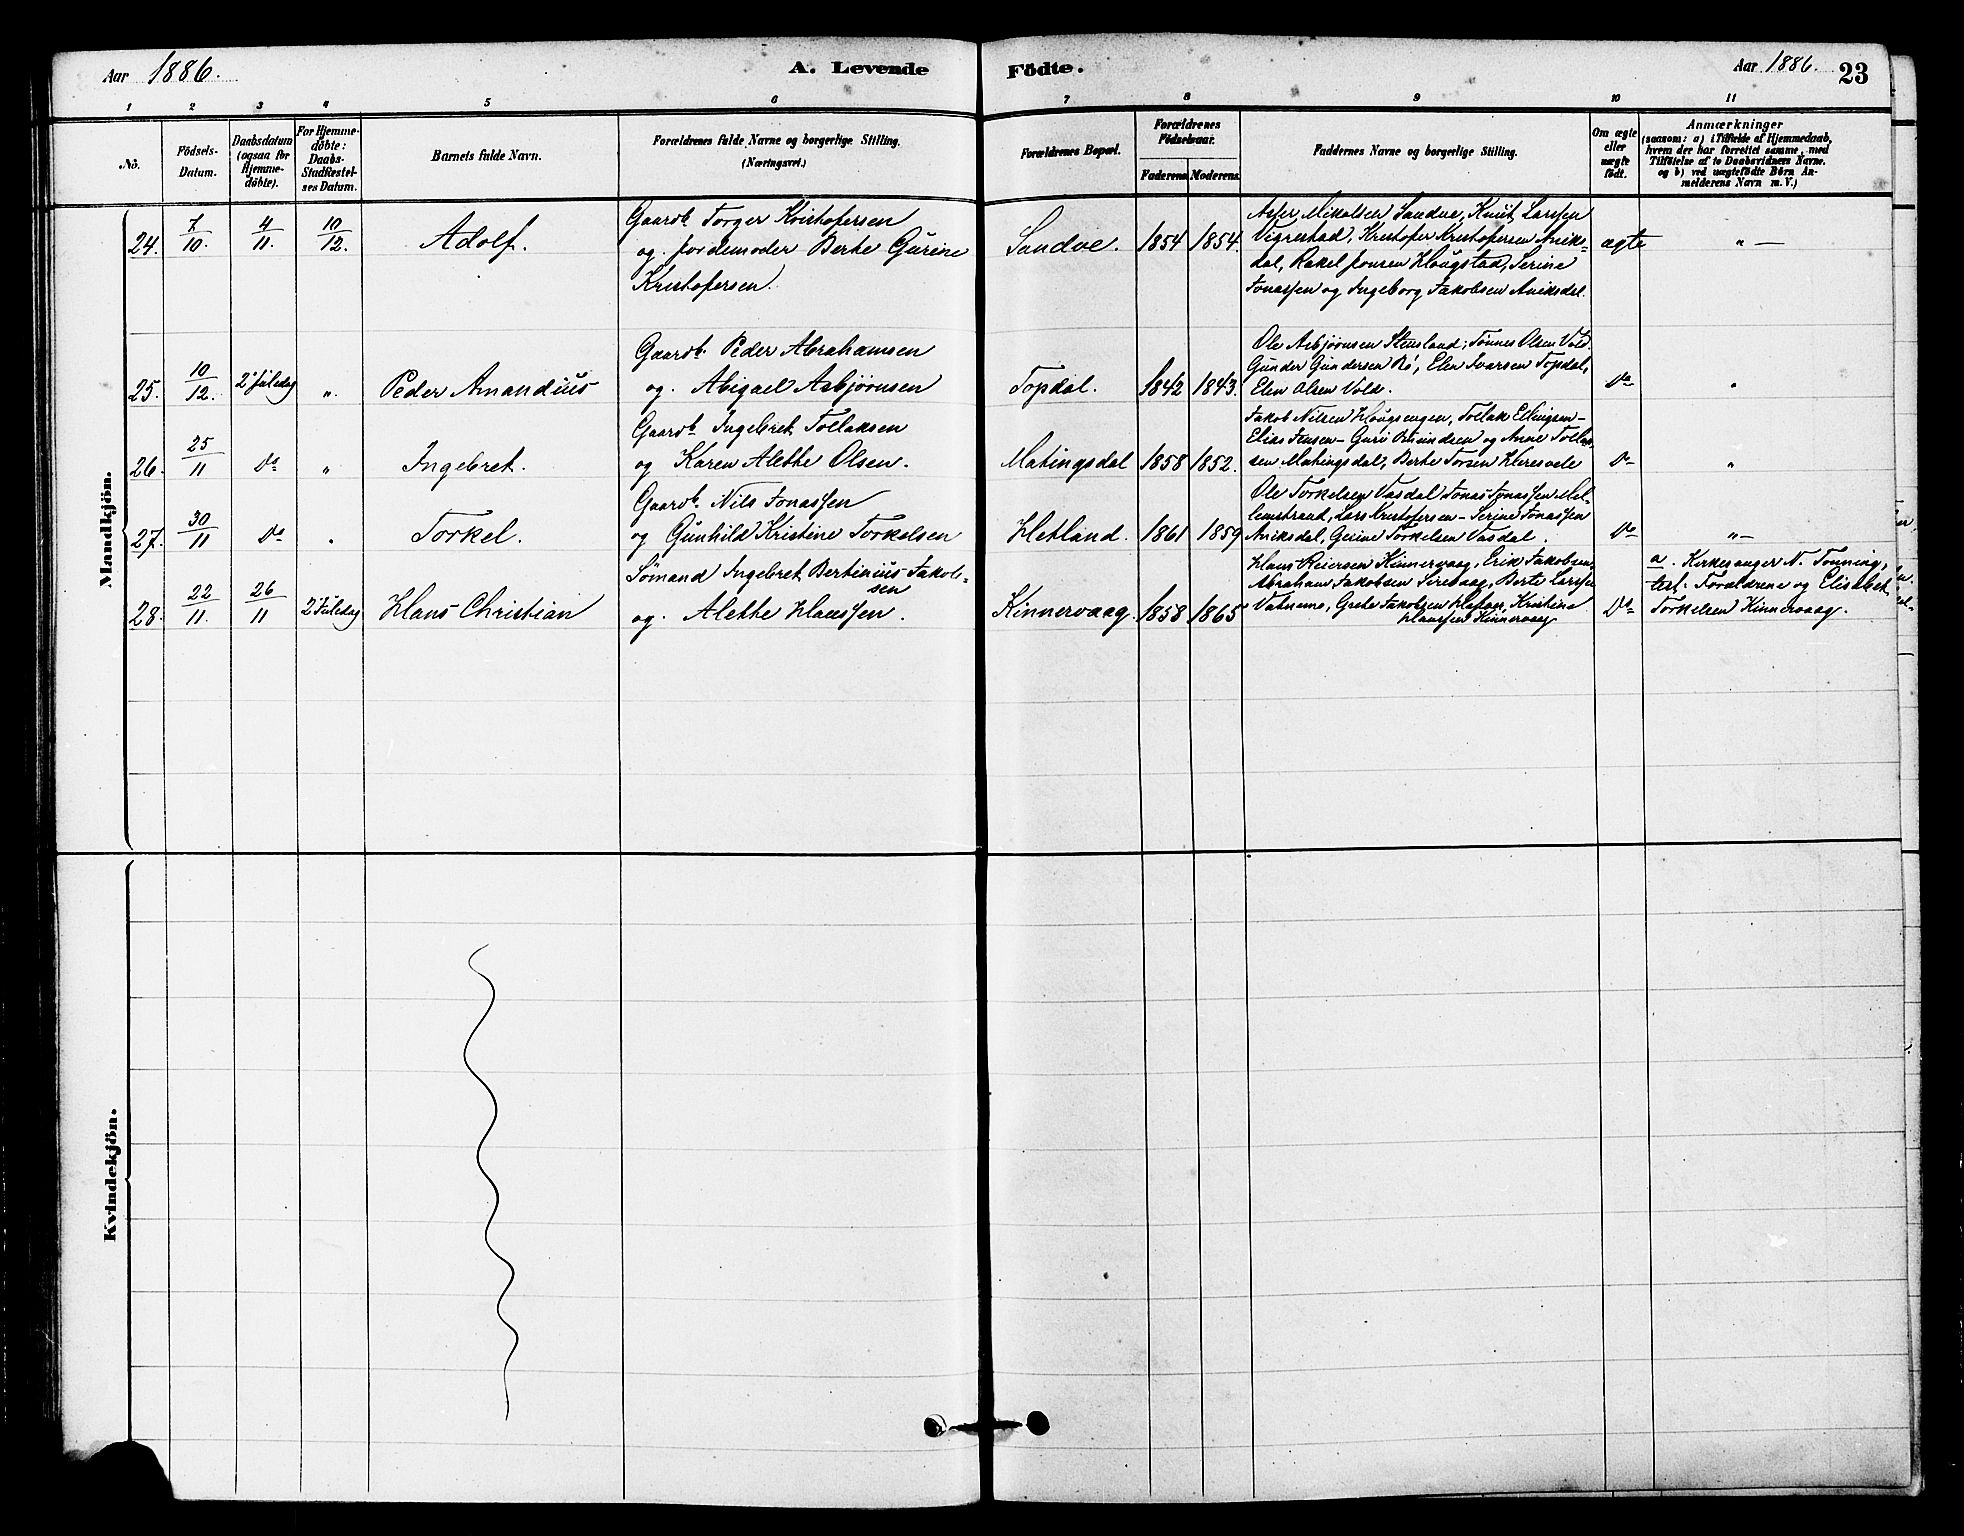 Aar 1886. A. Levende Födte. Aar 1886. 23
1 2 3 4 5 6 7 8 9 10 11
No. Födsels-Datum. Daabsdatum (ogsaa for Hjemmedöbte). For Hjemmedöbte: Daabs-Stadfæstelses Datum. Barnets fulde Navn. Forældrenes fulde Navne og borgerlige Stilling. (Næringsvei.) Forældrenes Bopæl. Forældrenes Födselsaar. Faderens. Moderens. Faddernes Navne og borgerlige Stilling. Om ægte eller uægte födt. Anmærkninger (saasom: a) i Tilfælde af Hjemmedaab, hvem der har forrettet samme, med Tilföielse af to Daabsvidners Navne. og b) ved uægtefödte Börn Anmelderens Navn m. V.)
Mandkjön.
Gaardb. Torger Kristofersen Asser Mikalsen Sandve, Knut Larssen
24. 7/10. 4/11. 10/12. Adolf. og Jordemoder Berte Gurine Sandve. 1854 1854. Vigrestad, Kristofer Kristofersen Aniks- ægte " —
Kristofersen. dal, Rakel Jonsen Haugstad, Serine
Jonassen og Ingeborg Jakobsen Aniksdal.
Gaardb. Peder Abrahamsen Ole Asbjørnsen Stensland; Tønnes Olsen Vold
Gunder Gundersen Rö, Elen Ivarsen Topdal,
25. 10/12. 2' Juledag " Peder Amandius og Abigael Asbjørnsen Topdal. 1842 1843. Elen Olsen Vold. Do "
Gaardb. Ingebret Tollaksen Jakob Nilsen Haugsengen, Tollak Ellingsen -
Elias Jensen - Guri Reindsen og Anne Tollak-
26. 25/11 Do " Ingebret. og Karen Alethe Olsen. Matingsdal 1858 1852. sen Matingsdal, Berte Torsen Heresvele Do "
Gaardb. Nils Jonassen Ole Torkelsen Vasdal Jonas Jonassen Mel-
lemstrand, Lars Kristofersen - Serine Jonassen
27. 30/11 Do " Torkel. og Gunhild Kristine Torkelsen Hetland. 1861 1859 Aniksdal, Gurine Torkelsen Vasdal. Do " —
Sømand Ingebret Bertinius Jakob- Hans Reiersen Kinnervaag, Erik Jakobsen, a. Kirkesanger N. Tonning,
sen Abraham Jakobsen Sirevaag, Berte Larssen test: Forældrene og Elisabet
28. 22/11. 26/11 2 Juledag Hans Christian og Alethe Hanssen. Kinnervaag. 1858 1865 Vatnemo, Grete Jakobsen, Kristine Do Torkelsen Kinnervaag.
Hanssen Kinnervaag
Kvindekjön.